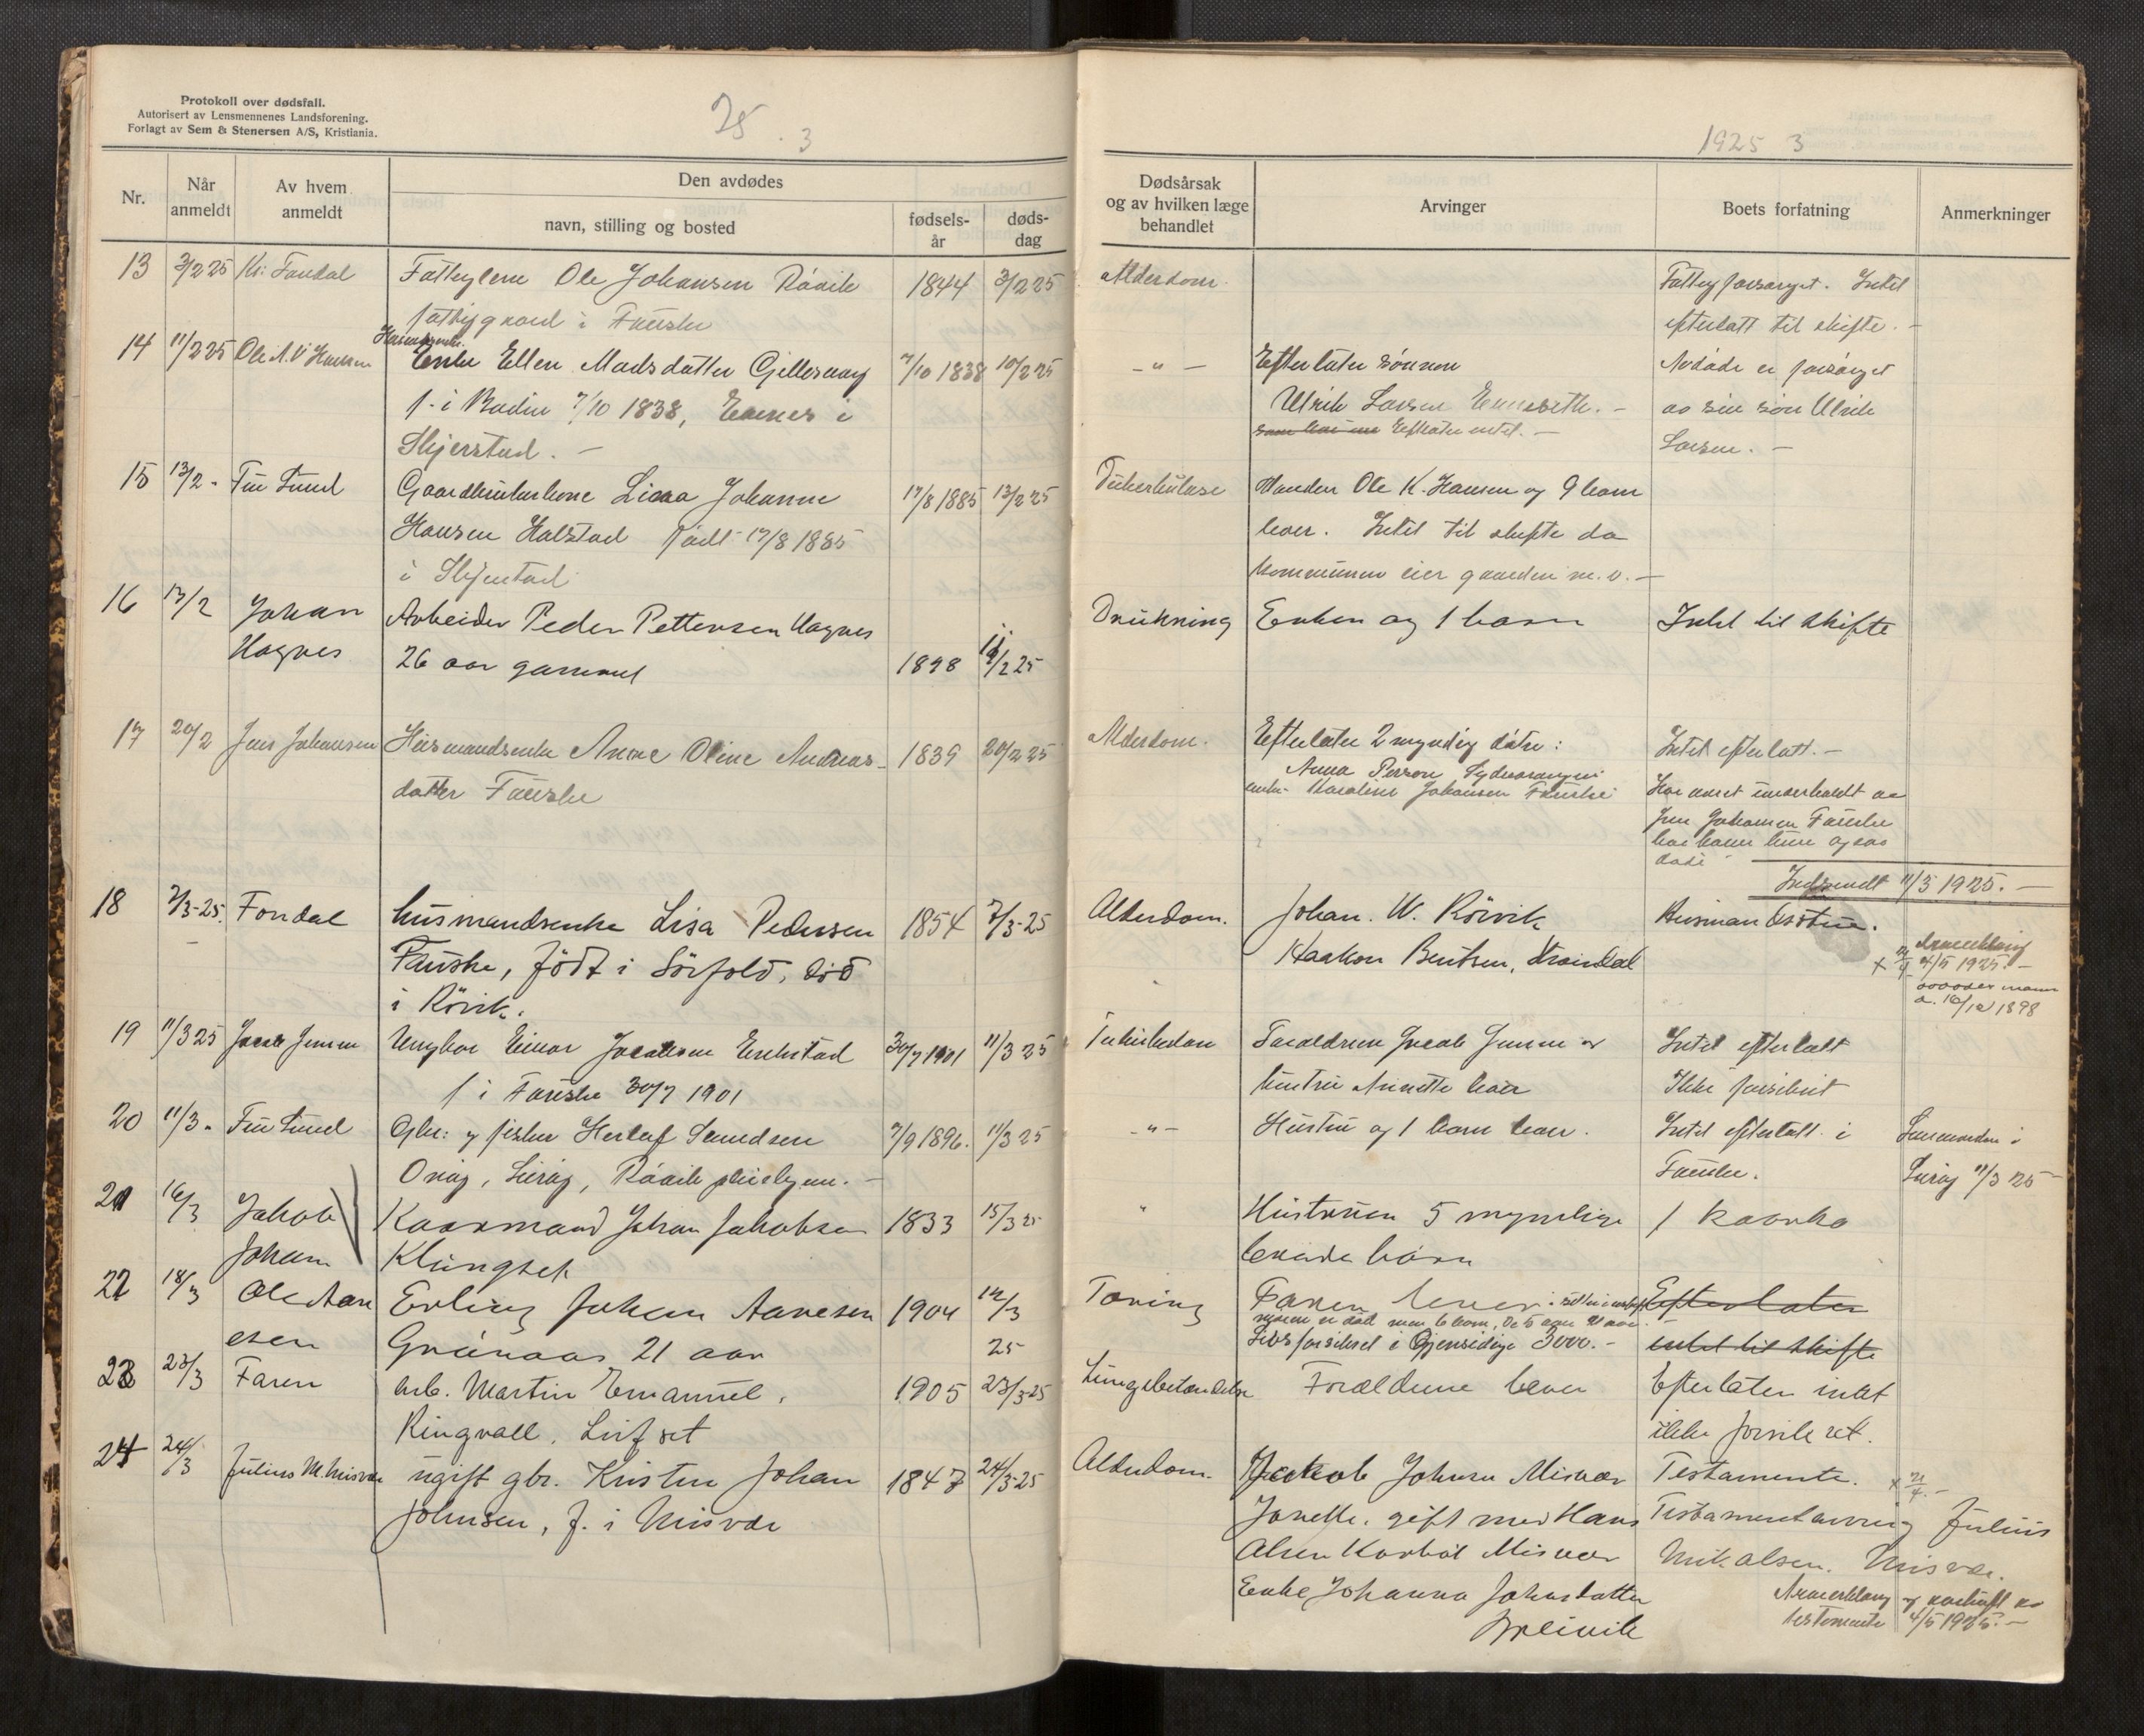 Protokoll over dødsfall.
Autorisert av Lensmennenes Landsforening.
Forlagt av Sem & Stenersen A/S, Kristiania.
25. 3
Nr.
Når anmeldt
Av hvem anmeldt
Den avdødes
navn, stilling og bosted
fødsels-år
døds-dag
13 3/2 25 Kr. Fondal Fattiglem Ole Johansen Röivik 1844 3/2 25
fattiggaard i Fauske
14 11/2 25 Ole A. Hansen Enke Ellen Madsdatter Gillesvaag 7/10 1838 10/2 25
f. i Bodin 7/10 1838, Evenes i
Skjerstad. -
15 13/2 - Finn Lund Gaardbrukerkone Lina Johanne 17/8 1885 13/2 25
Hansen Halstad født 17/8 1885
i Skjerstad
16 13/2 Johan Arbeider Peder Pettersen Hagnes
Hagnes 26 aar gammel 1898 /2 25
17 20/2 Jens Johansen Husmandsenke Anne Oline Andreas- 1839 20/2 25
datter Fauske
18 7/3-25. Fondal husmandsenke Lisa Pedersen 1854 7/3-25
Fauske, födt i Sörfold, död
i Rörvik.
19 11/3 25 Jacob Jensen Ungkar Einar Jacobsen Erikstad 30/7 1901 11/3 25
f i Fauske 30/7 1901
20 11/3 - Finn Lund Gbr: og fisker Herlaf 7/9 1896. 11/3 25
21 16/3 Jakob Kaarmand Johan Jakobsen 1833 15/3 25
Johan Klungset
22 18/3 Ole Aan Erling Johan Aanesen 1904 /3
esen Grönaas 21 aar 25
23 23/3 Faren arb. Martin Emanuel, 1905 23/3-25
Ringvall. Leifset
24 24/3 Julius M. Misvær ugift gbr. Kristen Johan 1847 24/3-25
Johnsen, f. i Misvær
1925 3
Dødsårsak og av hvilken læge behandlet
Arvinger
Boets forfatning
Anmerkninger
Alderdom. Fattigforsørget. Intet
efterlatt til skifte. -
- " - Efterlater sönnen Avdöde er forsörget
Ulrik Larsen - av sin sön Ulrik
Efterlater intet. - Larsen. -
Tuberkulose Manden Ole K. Hansen og 9 barn
lever. Intet til skifte da
kommunen eier gaarden m.v. -
Drukning Enken og 1 barn Intet til skifte
Alderdom. Efterlater 2 myndig døtre: Intet efterlatt. -
Anna Person
Karoline Johansen Fauske Har været underholdt av
Jens Johansen Fauske
hos ham hun ogsaa
döde
Indsendt 11/3 1925. -
Alderdom. Johan. W. Rörvik
Haakon Bentsen,
4/5 1925. -
/12 1898
Tuberkulose Forældrene Jacob Jensen og Intet efterlatt
hustru lever Ikke forsikret
- " - Hustru og 1 barn lever. Intet efterlatt i Lensmanden i
Fauske. 11/3 25
" Hustruen 5 myndige 1 kaarko
levende børn
Tæring Faren lever Efterlater
moren er död men 6 barn,
Livsforsikret i Gjensidige 3000. - intet til skifte
Lungebetændelse Forældrene lever Efterlater intet
ikke forsikret.
Alderdom. Jakob Johnsen Misvær Testamente. x 21/4. -
Janette. gift med Hans Testamentarving Julius
Olsen Misvær Mikalsen. Misvær.
Enke Johanna Johnsdatter
testamente 4/5 1925. -